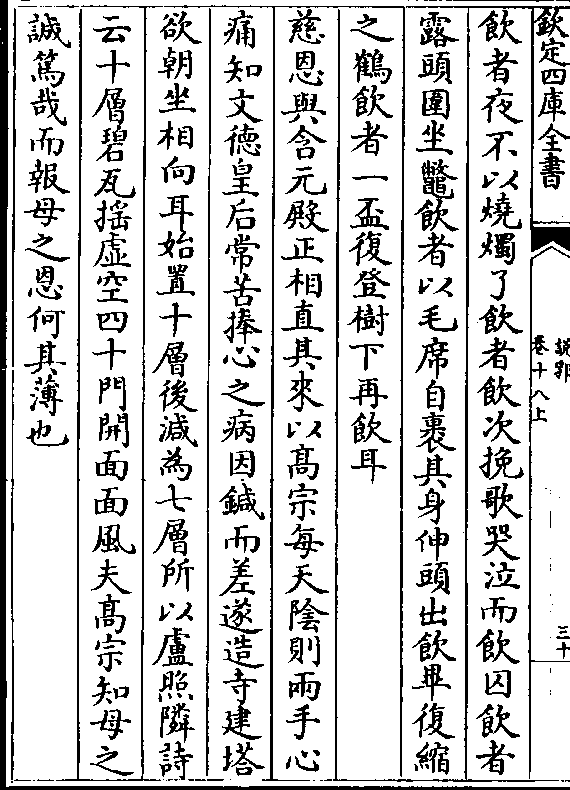 欽定四庫全書
說郛
卷十八上
三十
飲者夜不以燒燭了飲者飲次挽歌哭泣而飲囚飲者
露頭圍坐鼈飲者以毛席自裹其身伸頭出飲畢復縮
之鶴飲者一盃復登樹下再飲耳
慈恩與含元殿正相直其來以髙宗每天陰則兩手心
痛知文德皇后常苦捧心之病因鍼而差遂造寺建塔
欲朝坐相向耳始置十層後減為七層所以盧照隣詩
云十層碧瓦揺虛空四十門開面面風夫髙宗知母之
誠篤哉而報母之恩何其薄也